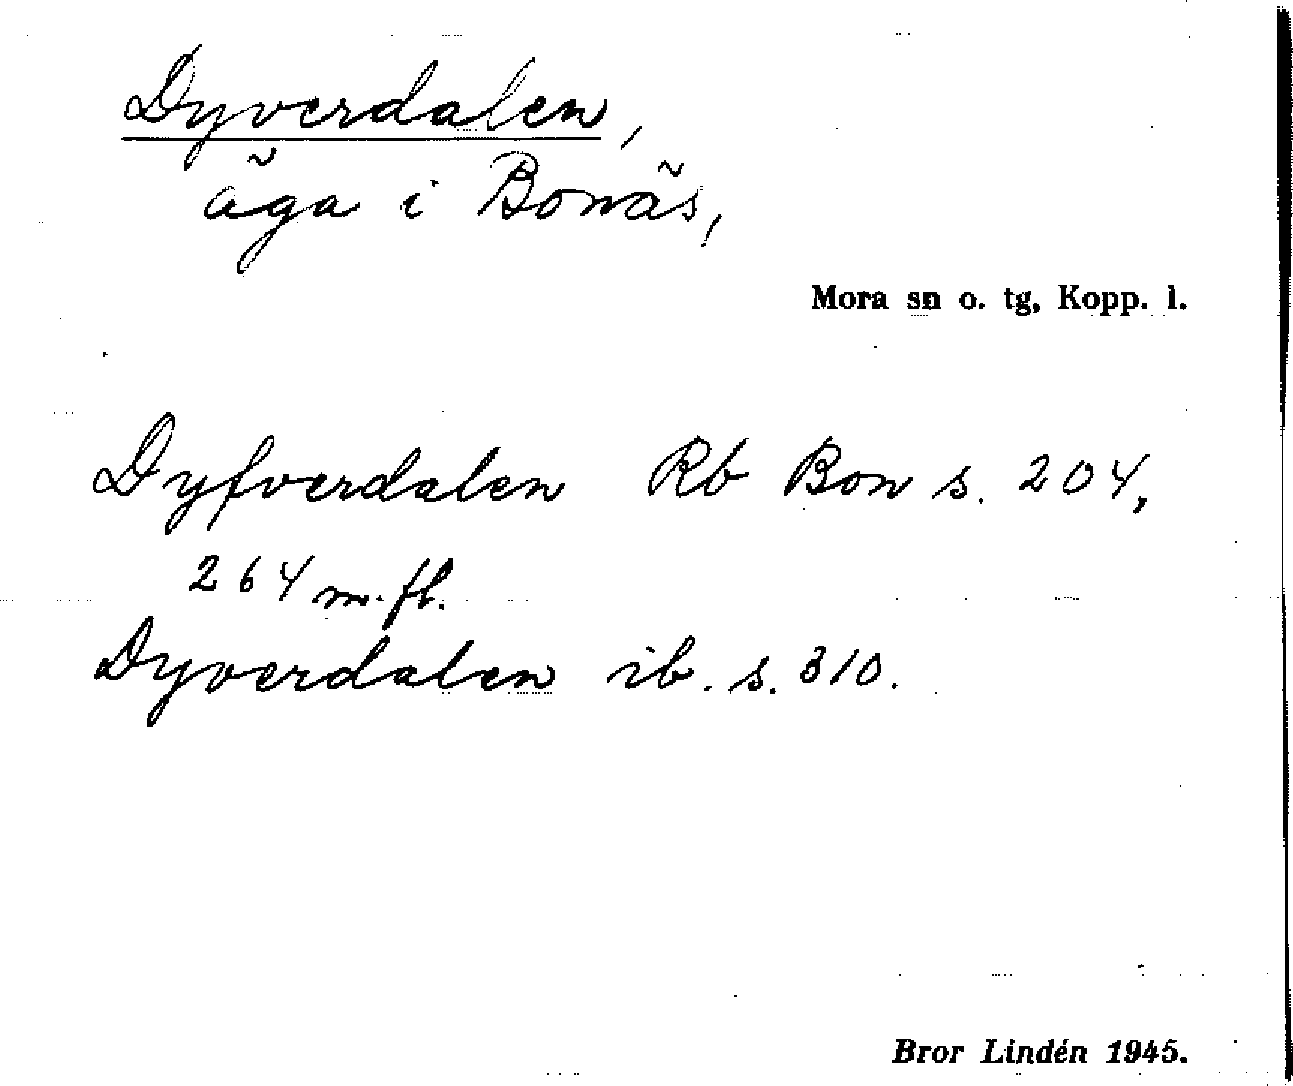 Dyverdalen,
äga i Bonäs,
Mora sn o. tg, Kopp. l.
Dyfverdalen Rb Bon s. 204,
264 m. fl.
Dyverdalen ib. s. 310.
Bror Lindén 1945.